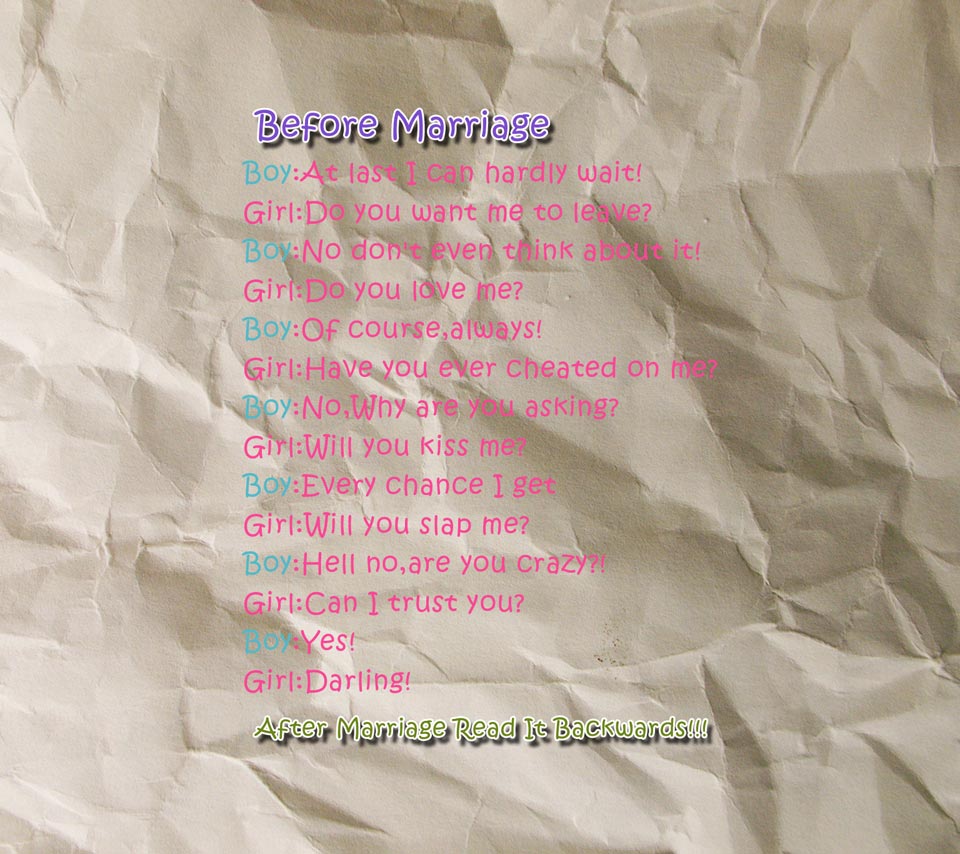 Before Marriage
Boy:At last I can hardly wait!
Girl:Do you want me to leave?
Boy:No don't even think about it!
Girl:Do you love me?
Boy:Of course,always!
Girl:Have you ever cheated on me?
Boy:No,Why are you asking?
Girl:Will you kiss me?
Boy:Every chance I get
Girl:Will you slap me?
Boy:Hell no,are you crazy?!
Girl:Can I trust you?
Boy:Yes!
Girl:Darling!
After Marriage Read It Backwards!!!